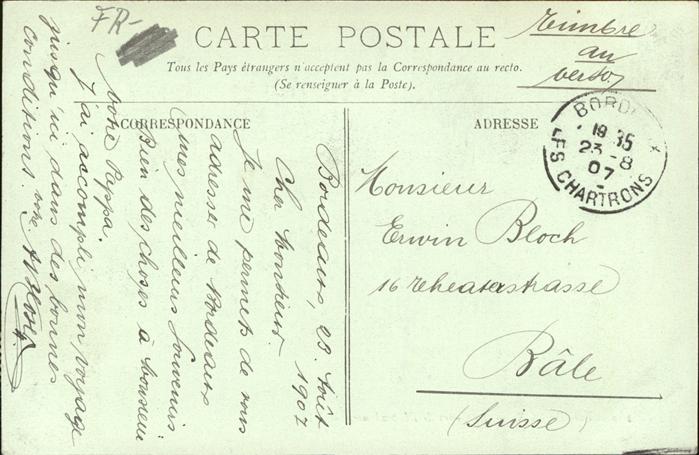 FR-
CARTE POSTALE
Tous les Pays étrangers n'acceptent pas la Correspondance au recto.
(Se renseigner à la Poste).
Timbre
au
verso
CORRESPONDANCE
ADRESSE
BORDEAUX
19 35
23-8
07
LES CHARTRONS
Bordeaux, 23. Août
1907
Cher Monsieur.
Je me permets de vous
adresser de Bordeaux
mes meilleurs Souvenirs
Bien des choses à Monsieur
votre Pappa.
J'ai accompli mon voyage
jusqu'ici dans des bonnes
conditions. votre
Monsieur
Erwin Bloch
16 Theaterstrasse
Bâle
(Suisse)